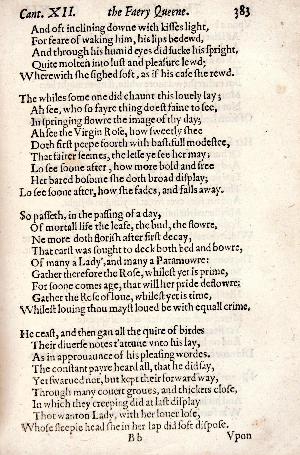 Cant. XII. the Faery Queene. 383
And oft inclining downe with kisses light,
For feare of waking him, his lips bedewd,
And through his humid eyes did sucke his spright,
Quite molten into lust and pleasure lewd;
Wherewith she sighed soft, as if his case she rewd.
The whiles some one did chaunt this louely lay;
Ah see, who so fayre thing doest faine to see,
In springing flowre the image of thy day;
Ah see the Virgin Rose, how sweetly shee
Doth first peepe foorth with bashfull modestee,
That fairer seemes, the lesse ye see her may;
Lo see soone after, how more bold and free
Her bared bosome she doth broad display;
Lo see soone after, how she fades, and falls away.
So passeth, in the passing of a day,
Of mortall life the leafe, the bud, the flowre,
Ne more doth florish after first decay,
That earst was sought to deck both bed and bowre,
Of many a Lady', and many a Paramowre:
Gather therefore the Rose, whilest yet is prime,
For soone comes age, that will her pride deflowre:
Gather the Rose of loue, whilest yet is time,
Whilest louing thou mayst loued be with equall crime.
He ceast, and then gan all the quire of birdes
Their diuerse notes t'attune vnto his lay,
As in approuaunce of his pleasing wordes.
The constant payre heard all, that he did say,
Yet swarued not, but kept their forward way,
Through many couert groues, and thickets close,
In which they creeping did at last display
That wanton Lady, with her louer lose,
Whose sleepie head she in her lap did soft dispose.
B b Vpon